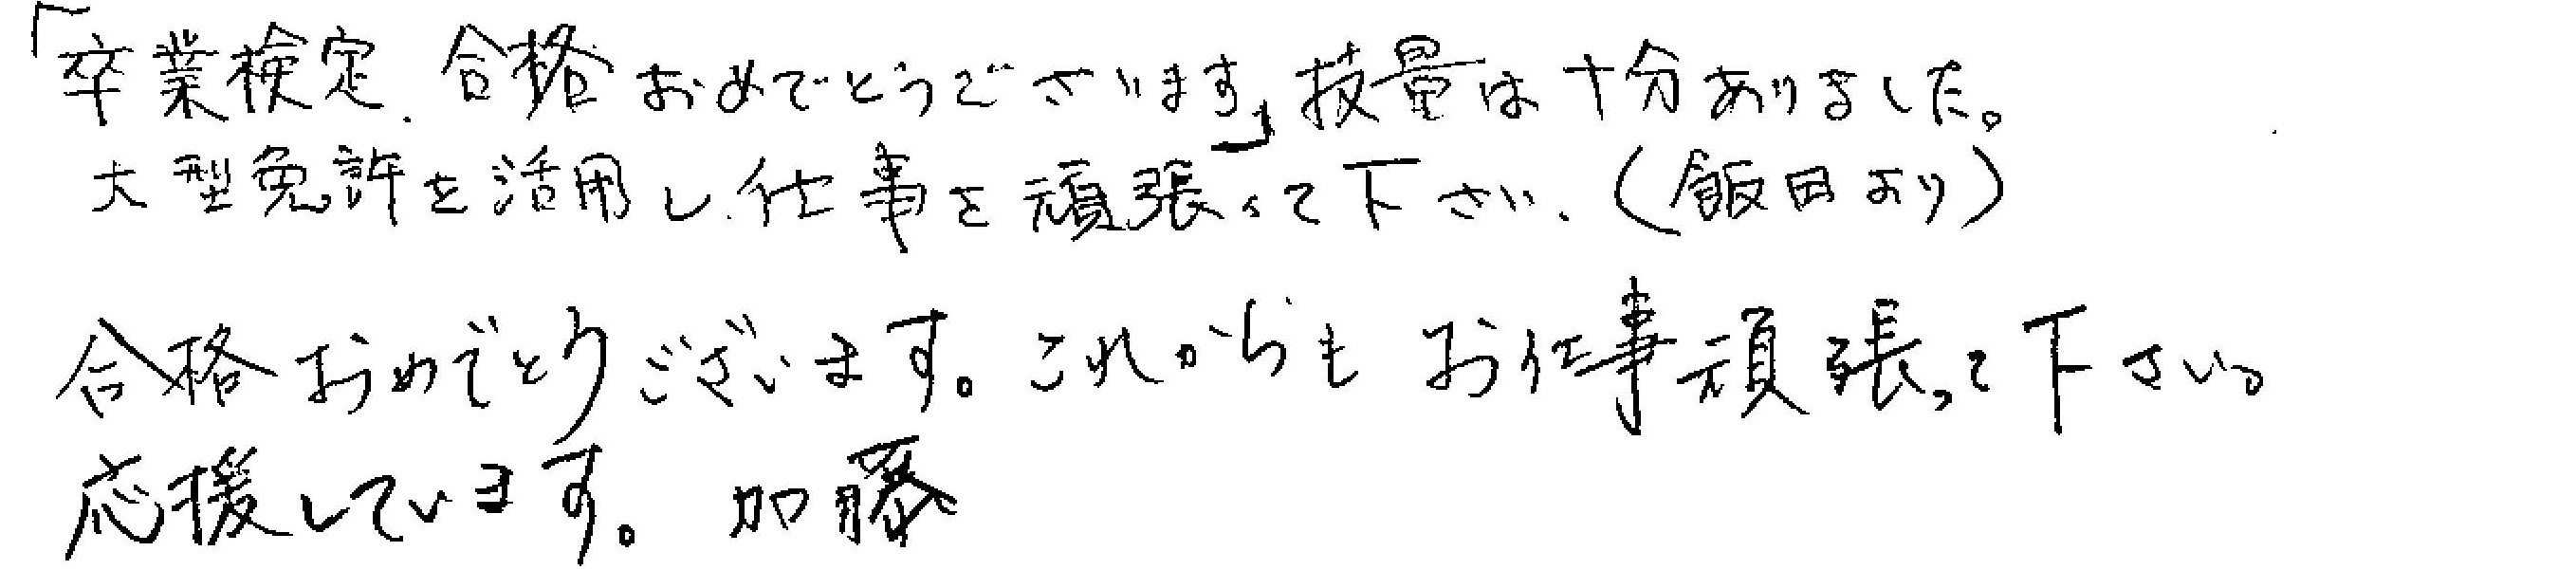 「卒業検定、合格おめでとうございます」技量は十分ありました。
大型免許を活用し、仕事を頑張って下さい、(飯田より)
合格おめでとうございます。これからもお仕事頑張って下さい。
応援しています。 加藤